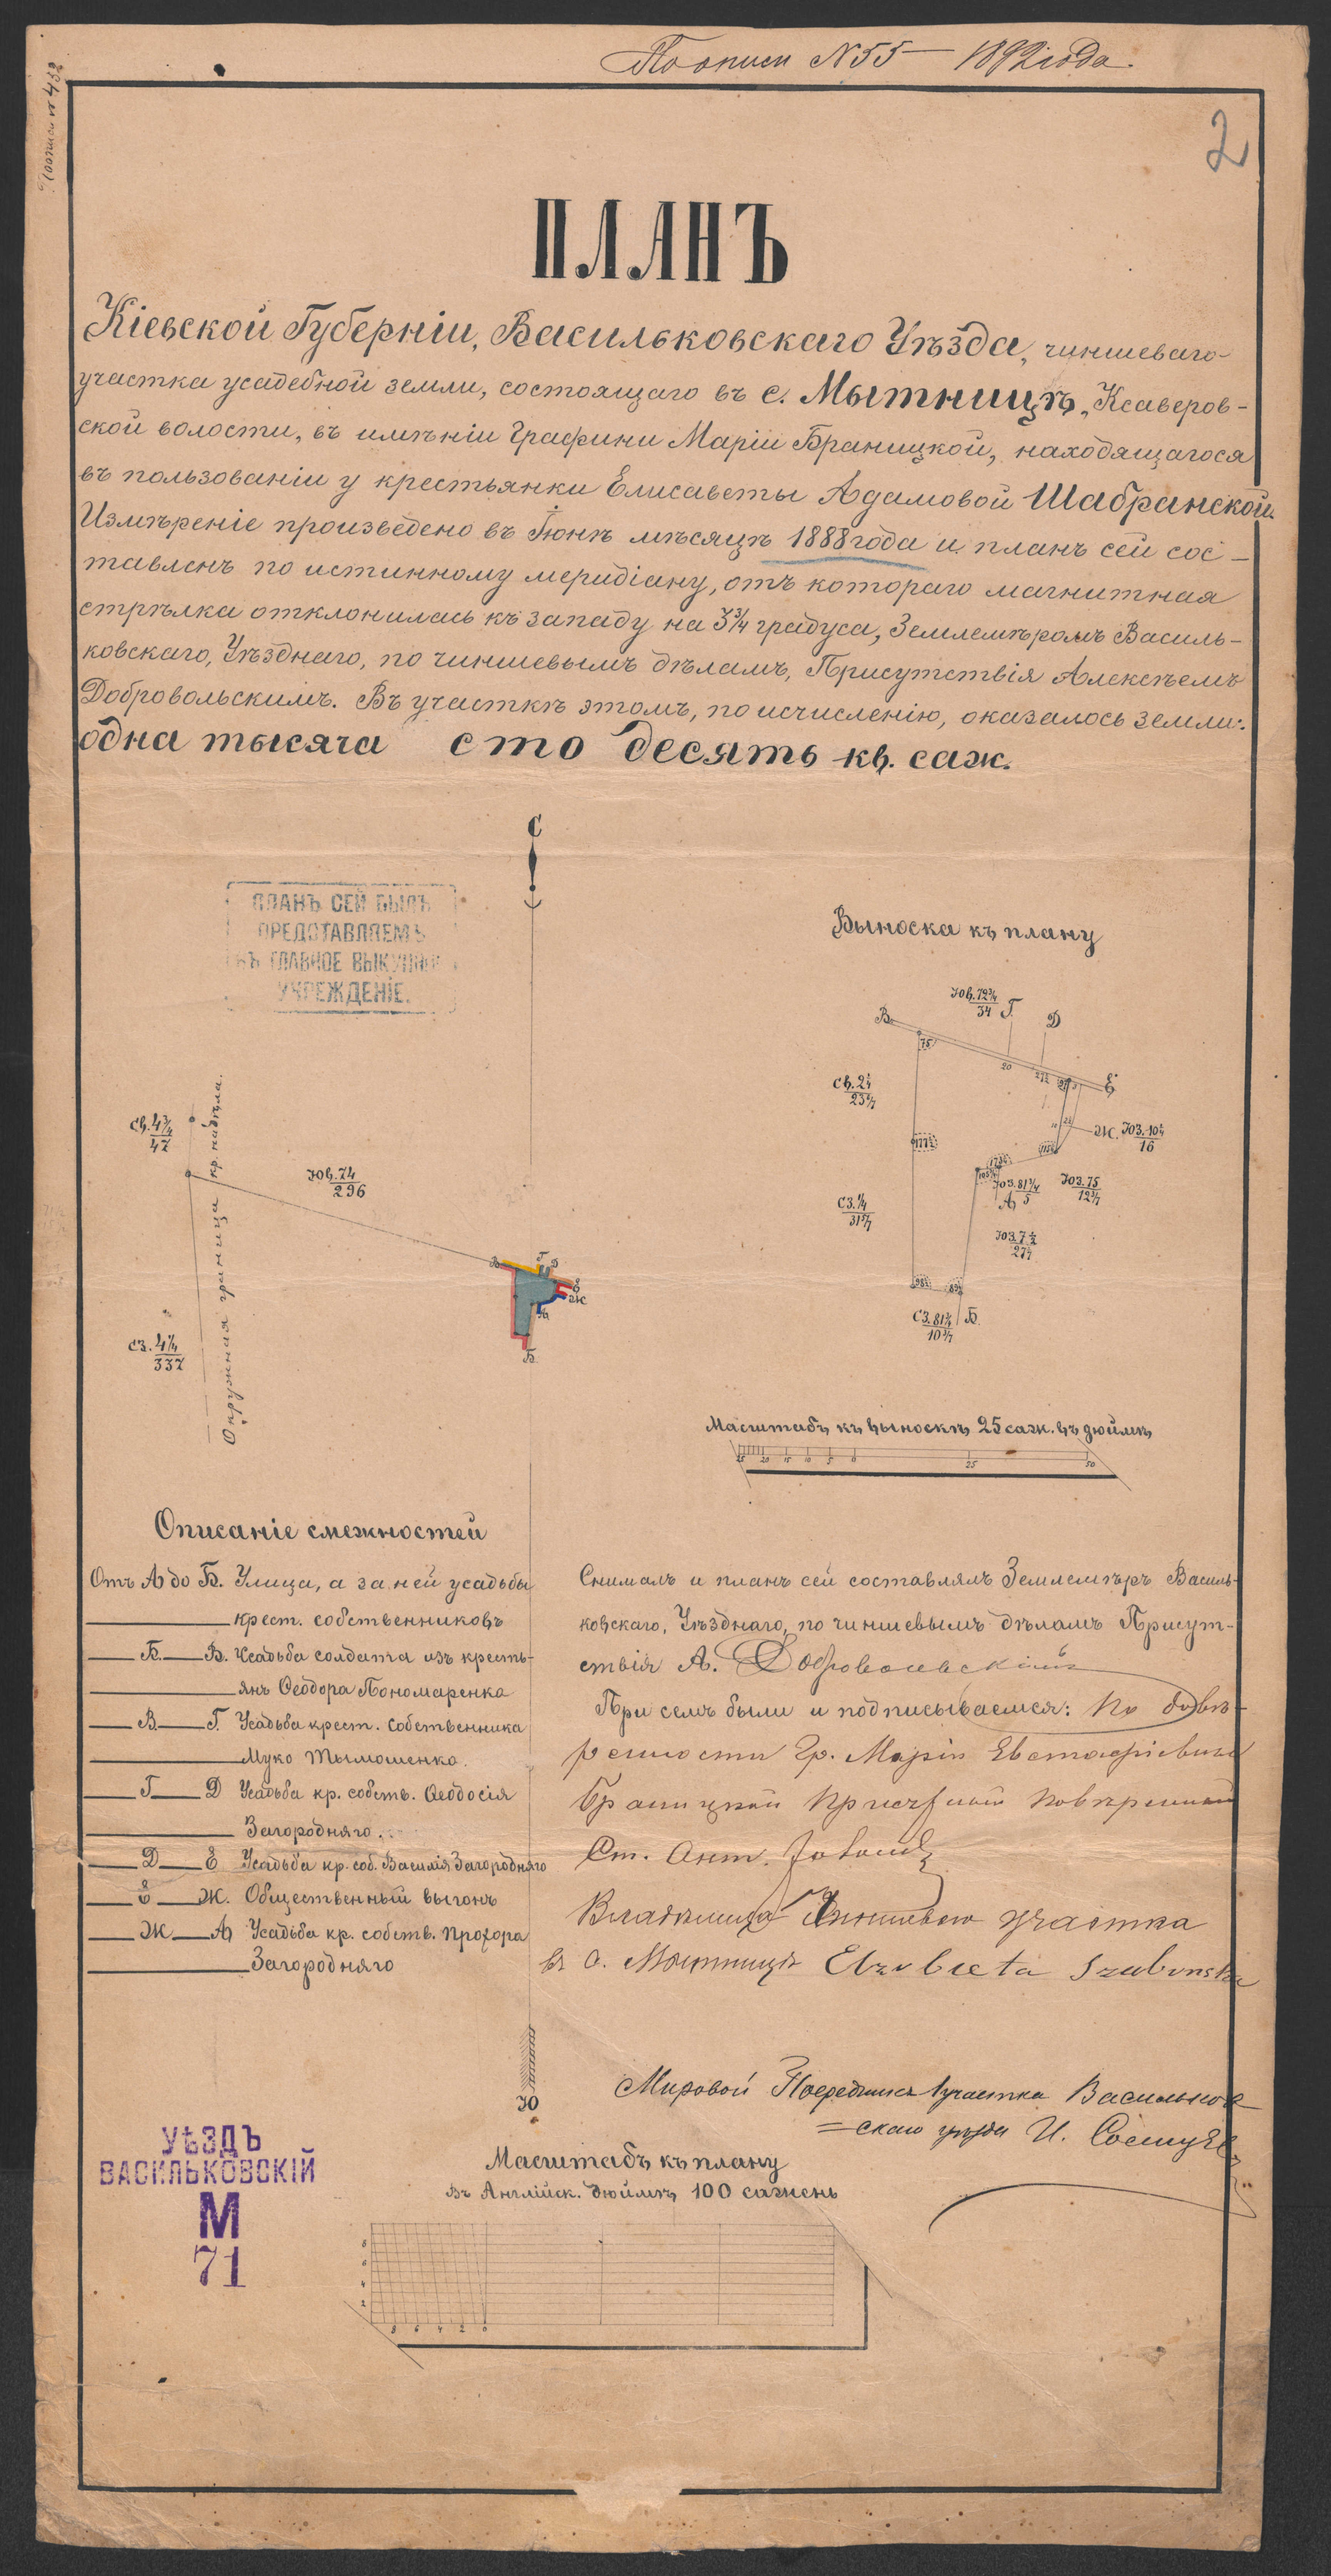 По описи N 55 — 1892 года.
По описи N 432
2
ПЛАНЪ
Кіевской Губерніи, Васильковскаго Уѣзда, чиншеваго
участка усадебной земли, состоящаго въ с. Мытницѣ, Ксаверов-
ской волости, въ имѣніи Графини Маріи Браницкой, находящагося
въ пользованіи у крестьянки Елисаветы Адамовой Шабранской.
Измѣреніе произведено въ Іюнѣ мѣсяцѣ 1888 года и планъ сей сос-
тавленъ по истинному меридіану, отъ котораго магнитная
стрѣлка отклонилась къ западу на 3¾ градуса, Землемѣромъ Василь-
ковскаго, Уѣзднаго, по чиншевымъ дѣламъ, Присутствія Алексѣемъ
Добровольскимъ. Въ участкѣ этомъ, по исчисленію, оказалось земли:
одна тысяча сто десять кв. саж.
С
ПЛАНЪ СЕЙ БЫЛЪ
ПРЕДСТАВЛЯЕМЪ
ВЪ ГЛАВНОЕ ВЫКУПНОЕ
УЧРЕЖДЕНІЕ.
Выноска къ плану
ЮВ. 72¾
34
В Г Д Е
75
20
27½
СВ. 2¼
Ж. ЮЗ. 10¼
16
ЮЗ. 81¾
А 5
ЮЗ. 75
СЗ. ¼
ЮЗ. 7½
СЗ. 81¾ Б.
СВ. 4¾
47
ЮВ. 74
296
СЗ. 4¼
337
Окружная граница кр. надѣла.
В Г Д Е Ж А Б
Масштабъ къ выноскѣ 25 саж. въ дюймѣ
25 20 15 10 5 0 25 50
Описаніе смежностей
Отъ А до Б. Улица, а за ней усадьбы
крест. собственниковъ
Б. В. Усадьба солдата изъ кресть-
янъ Ѳеодора Пономаренка
В Г. Усадьба крест. собственника
Муко Тымошенко.
Г Д Усадьба кр. собств. Ѳеодосія
Загородняго.
Д Е Усадьба кр. соб. Василія Загородняго
Е Ж. Общественный выгонъ
Ж А Усадьба кр. собств. Прохора
Загородняго
Снималъ и планъ сей составлялъ Землемѣръ Василь-
ковскаго, Уѣзднаго, по чиншевымъ дѣламъ Присут-
ствія А. Добровольскій
При семъ были и подписываемся: По довѣ-
ренности Гр. Маріи Евстафіевны
Браницкой
Ст. Ант.
Владѣлица чиншеваго участка
въ с. Мытницѣ Elzbieta
Мировой Посредникъ 1 участка Васильков-
=скаго уѣзда И.
Ю
УѢЗДЪ
ВАСИЛЬКОВСКІЙ
М
71
Масштабъ къ плану
Въ Англійск. дюймѣ 100 сажень
8
6
4
2
8 6 4 2 0